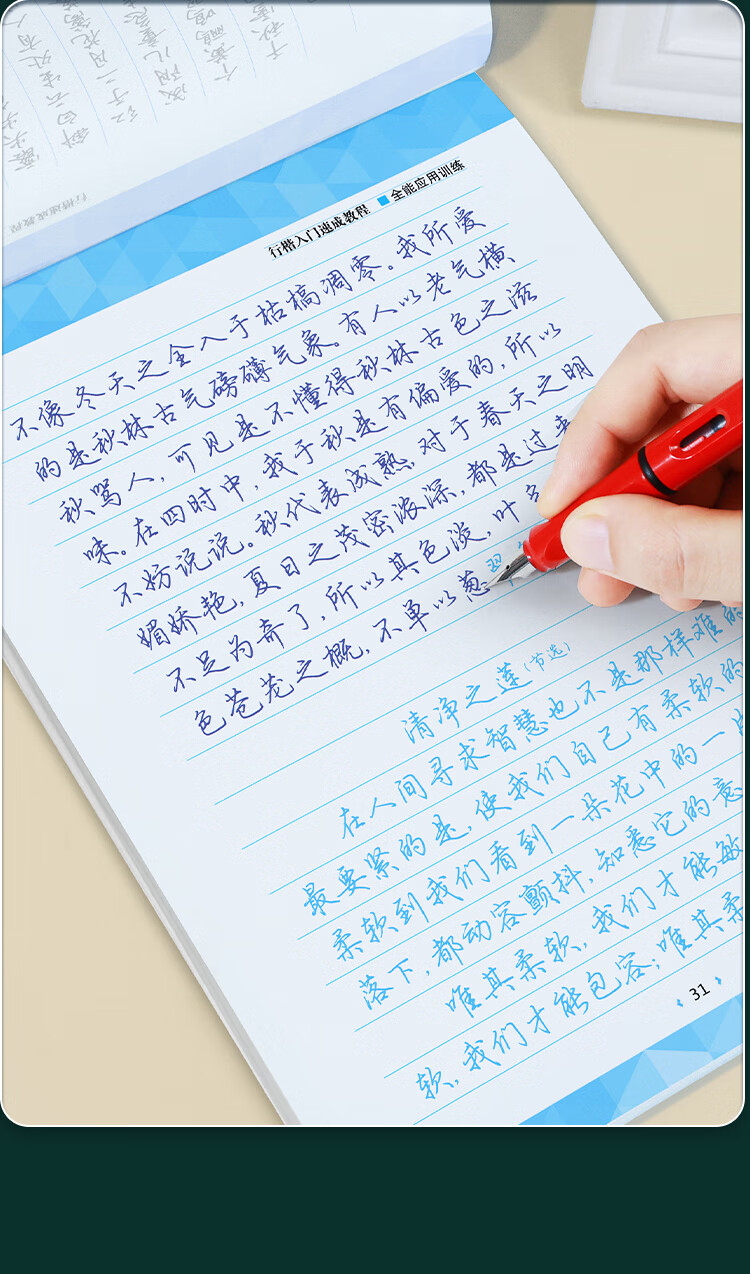 行楷入门速成教程 全能应用训练
不像冬天之全入于枯槁凋零。我所爱
的是秋林古气磅礴气象。有人以老气横
秋骂人,可见是不懂得秋林古色之滋
味。在四时中,我于秋是有偏爱的,所以
不妨说说。秋代表成熟,对于春天之明
媚娇艳,夏日之茂密浓深,都是过来
不足为奇了,所以其色淡,叶多
色苍茏之概,不单以葱
清净之莲(节选)
在人间寻求智慧也不是那样难的
最要紧的是,使我们自己有柔软的
柔软到我们看到一朵花中的一
落下,都动容颤抖,知悉它的意
唯其柔软,我们才能敏
软,我们才能包容;唯其柔
31